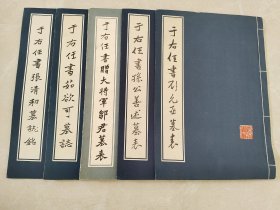 于右任書彭允恭墓表
于右任書孫公善述墓表
于右任書贈大將軍鄒君墓表
于右任書茹欲可墓誌
于右任書張清和墓誌銘